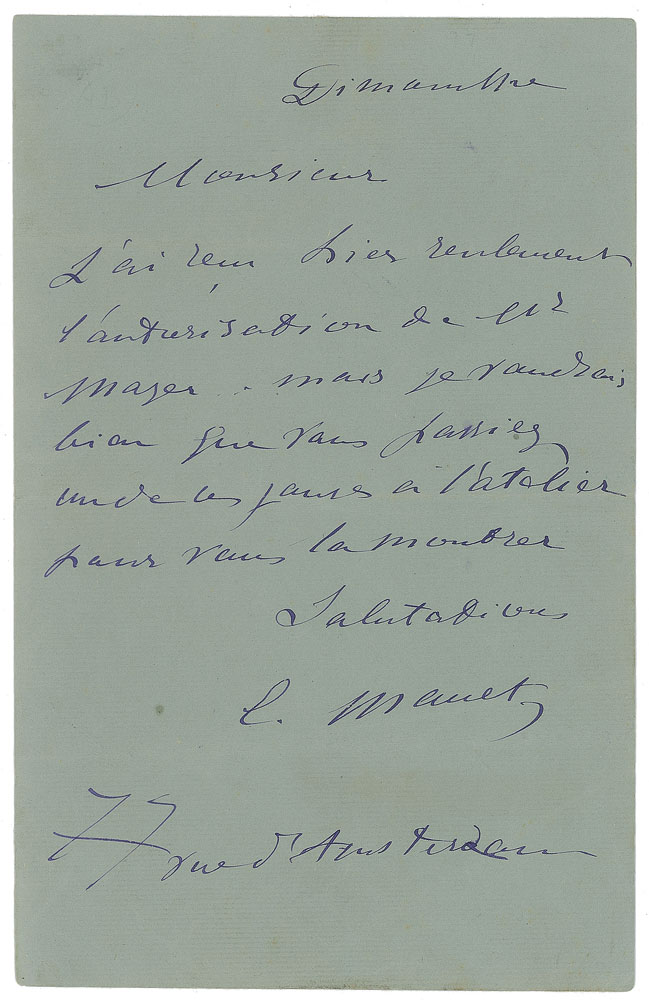 Dimanche
Monsieur
J'ai reçu hier seulement
l'autorisation de Mr
Mayer. mais je voudrais
bien que vous passiez
un de ces jours à l'atelier
pour vous la montrer
Salutations
E. Manet
77 rue d'Amsterdam